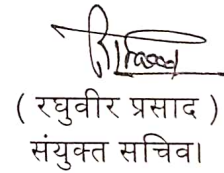 ( रघुवीर प्रसाद )
संयुक्त सचिव।